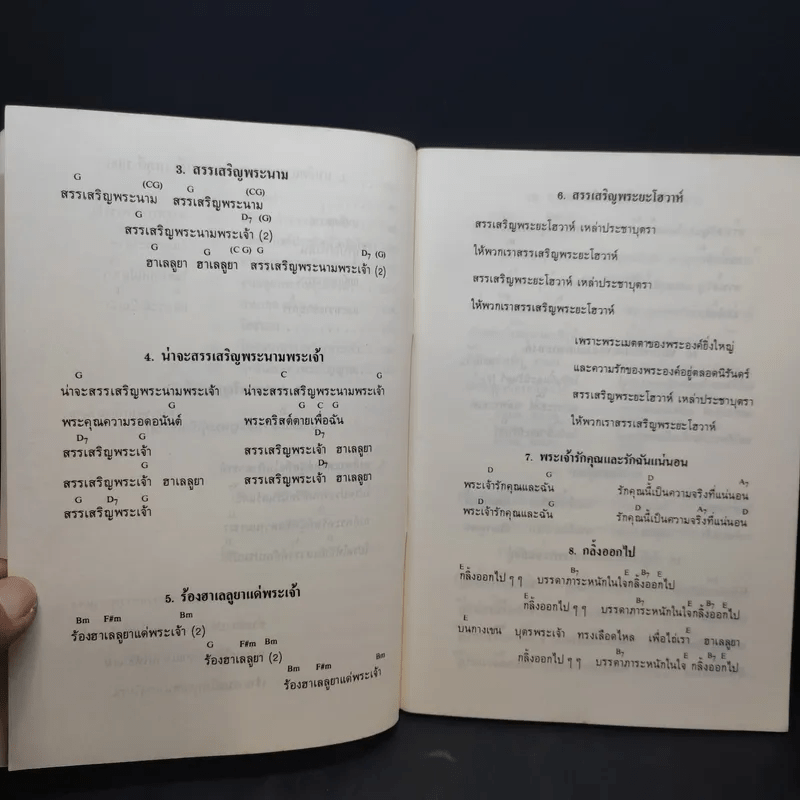 3. สรรเสริญพระนาม
G (CG) G (CG)
สรรเสริญพระนาม สรรเสริญพระนาม
G D7 (G)
สรรเสริญพระนามพระเจ้า (2)
G G (C G) G D7 (G)
ฮาเลลูยา ฮาเลลูยา สรรเสริญพระนามพระเจ้า (2)
4. น่าจะสรรเสริญพระนามพระเจ้า
G C G
น่าจะสรรเสริญพระนามพระเจ้า น่าจะสรรเสริญพระนามพระเจ้า
G G C G
พระคุณความรอดอนันต์ พระคริสต์ตายเพื่อฉัน
D7 G D7
สรรเสริญพระเจ้า สรรเสริญพระเจ้า ฮาเลลูยา
G D7
สรรเสริญพระเจ้า ฮาเลลูยา สรรเสริญพระเจ้า ฮาเลลูยา
G D7 G
สรรเสริญพระเจ้า
5. ร้องฮาเลลูยาแด่พระเจ้า
Bm F#m Bm
ร้องฮาเลลูยาแด่พระเจ้า (2)
G F#m Bm
ร้องฮาเลลูยา (2)
Bm F#m Bm
ร้องฮาเลลูยาแด่พระเจ้า
6. สรรเสริญพระยะโฮวาห์
สรรเสริญพระยะโฮวาห์ เหล่าประชาบุตรา
ให้พวกเราสรรเสริญพระยะโฮวาห์
สรรเสริญพระยะโฮวาห์ เหล่าประชาบุตรา
ให้พวกเราสรรเสริญพระยะโฮวาห์
เพราะพระเมตตาของพระองค์ยิ่งใหญ่
และความรักของพระองค์อยู่ตลอดนิรันดร์
สรรเสริญพระยะโฮวาห์ เหล่าประชาบุตรา
ให้พวกเราสรรเสริญพระยะโฮวาห์
7. พระเจ้ารักคุณและรักฉันแน่นอน
D G D A7
พระเจ้ารักคุณและฉัน รักคุณนี้เป็นความจริงที่แน่นอน
D G D A7 D
พระเจ้ารักคุณและฉัน รักคุณนี้เป็นความจริงที่แน่นอน
8. กลิ้งออกไป
E B7 E B7 E
กลิ้งออกไป ๆ ๆ บรรดาภาระหนักในใจกลิ้งออกไป
E B7 E B7 E
กลิ้งออกไป ๆ ๆ บรรดาภาระหนักในใจกลิ้งออกไป
E E
บนกางเขน บุตรพระเจ้า ทรงเลือดไหล เพื่อไถ่เรา ฮาเลลูยา
B7 E B7 E
กลิ้งออกไป ๆ ๆ บรรดาภาระหนักในใจ กลิ้งออกไป